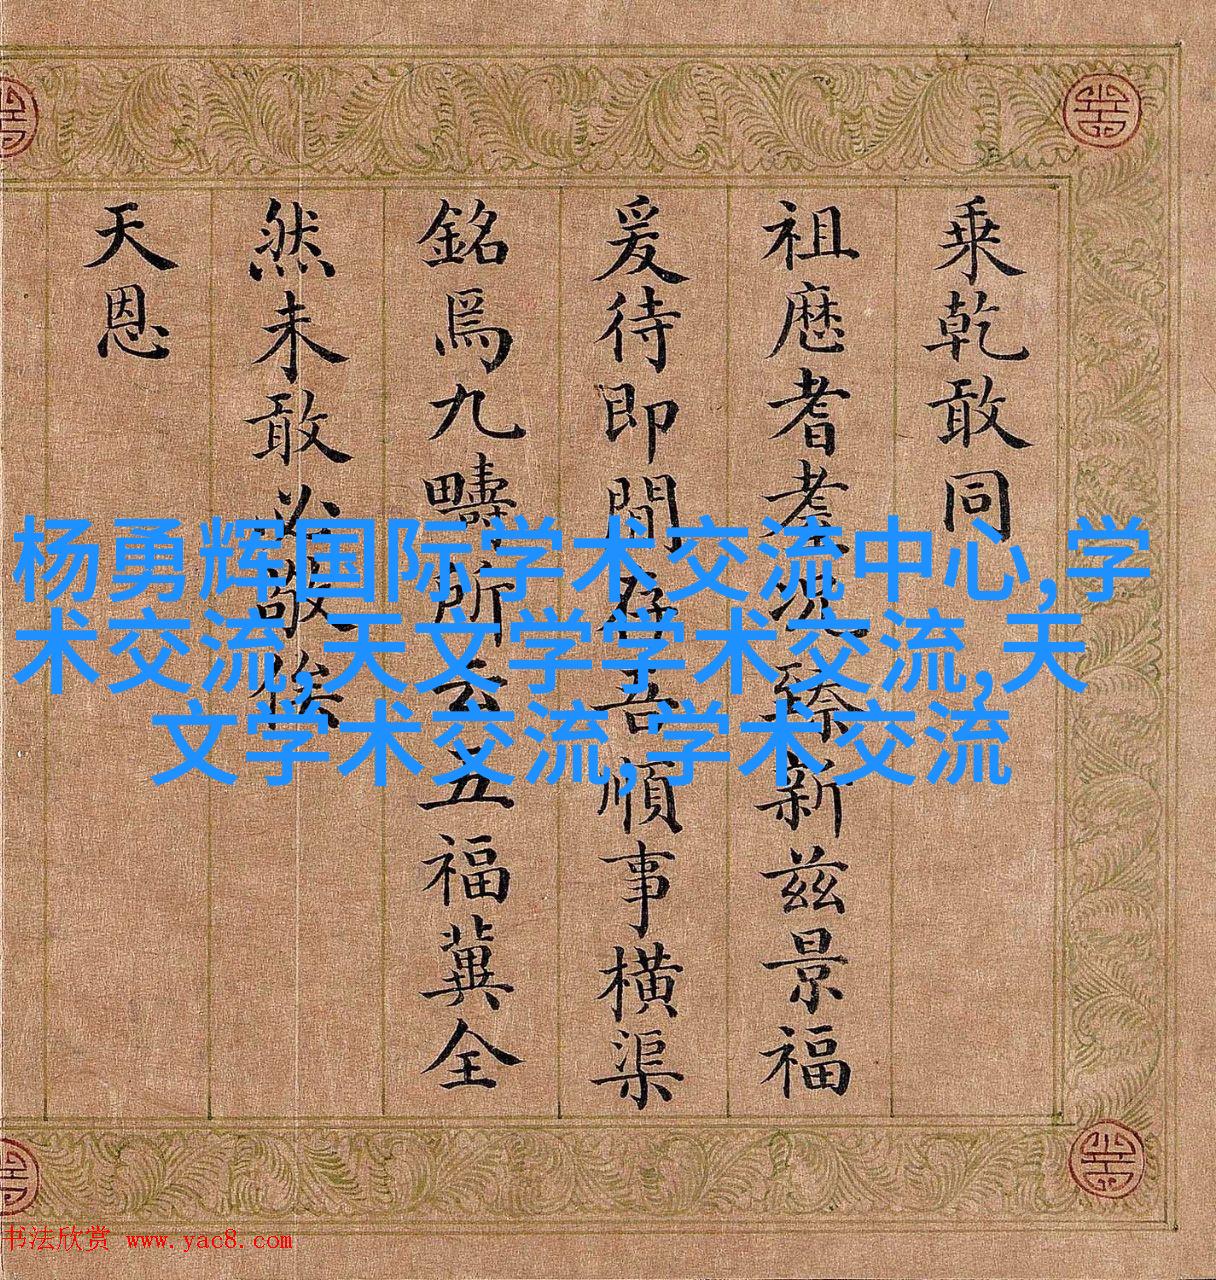 乗乾敢同
祖歴耆耄況臻新兹景福
爰待即間存吾順事横渠
銘爲九疇所云五福冀全
然未敢必敬俟
天恩
杨勇辉国际学术交流中心,学
术交流,天文学学术交流,天
文学术交流,学术交流
书法欣赏 www.yac8.com